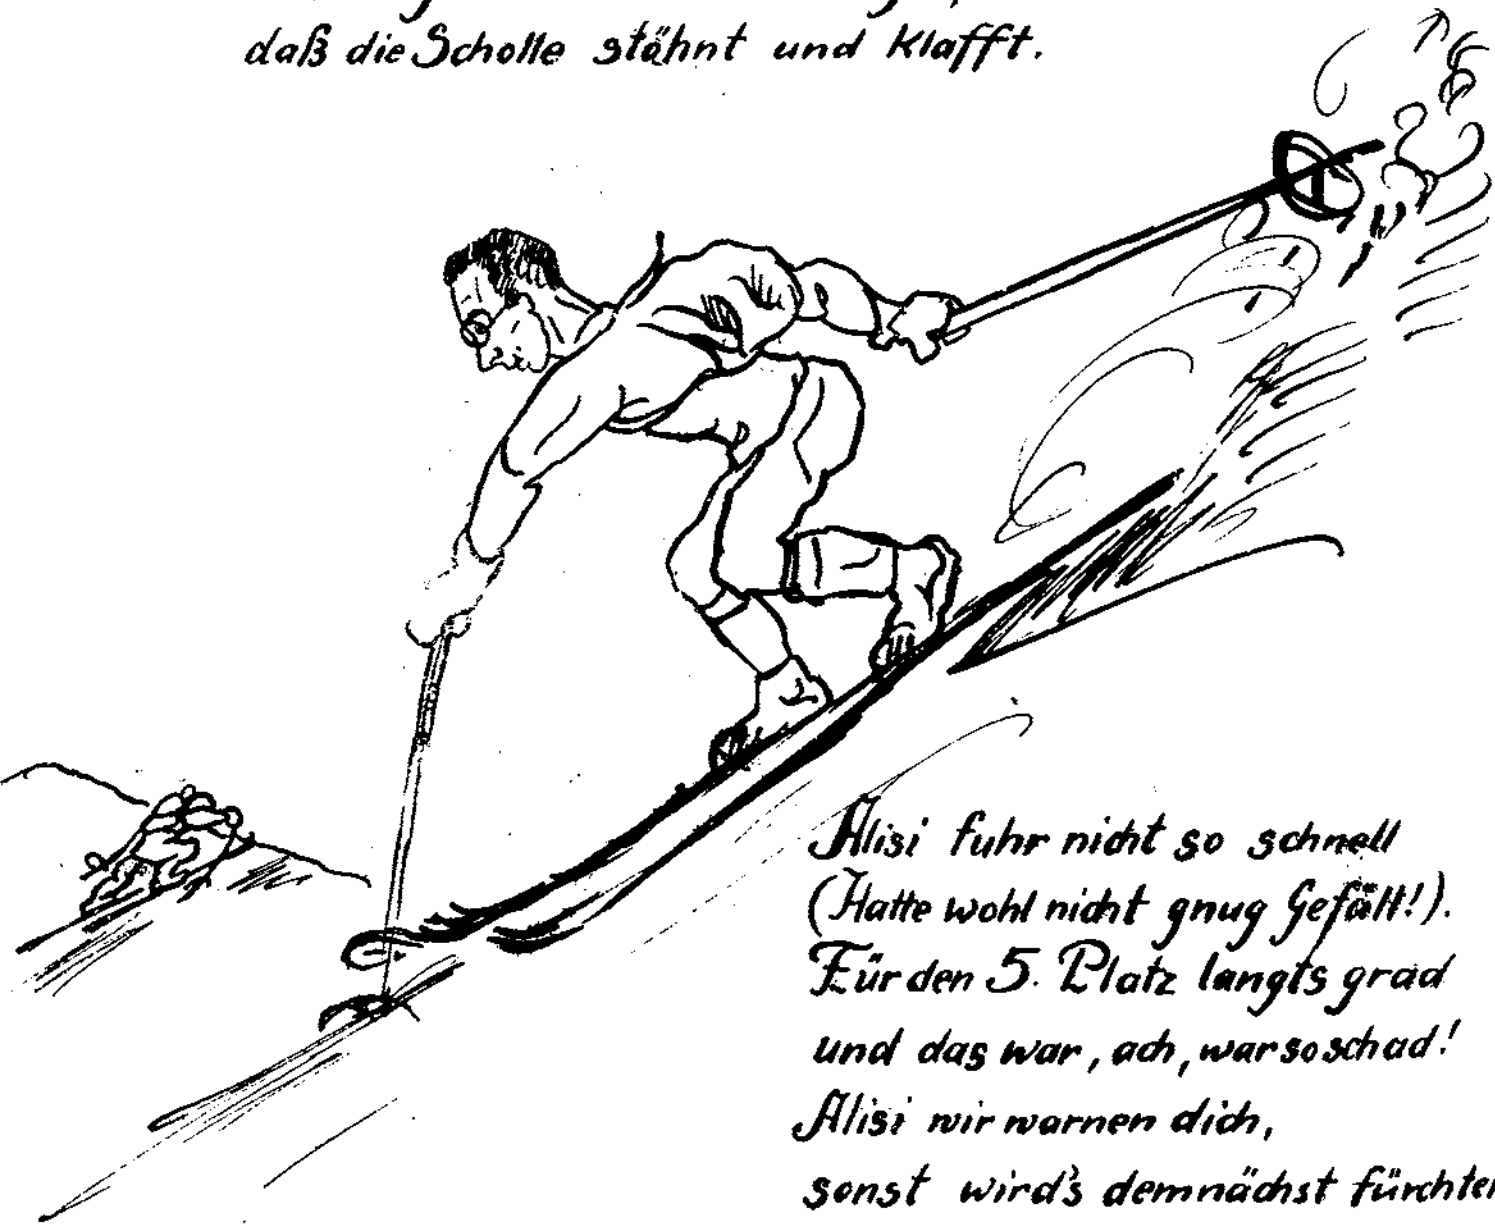 daß die Scholle stöhnt und klafft.
Alisi fuhr nicht so schnell
(Hatte wohl nicht gnug Gefäll!).
Für den 5. Platz langts grad
und das war, ach, war so schad!
Alisi wir warnen dich,
sonst wird's demnächst